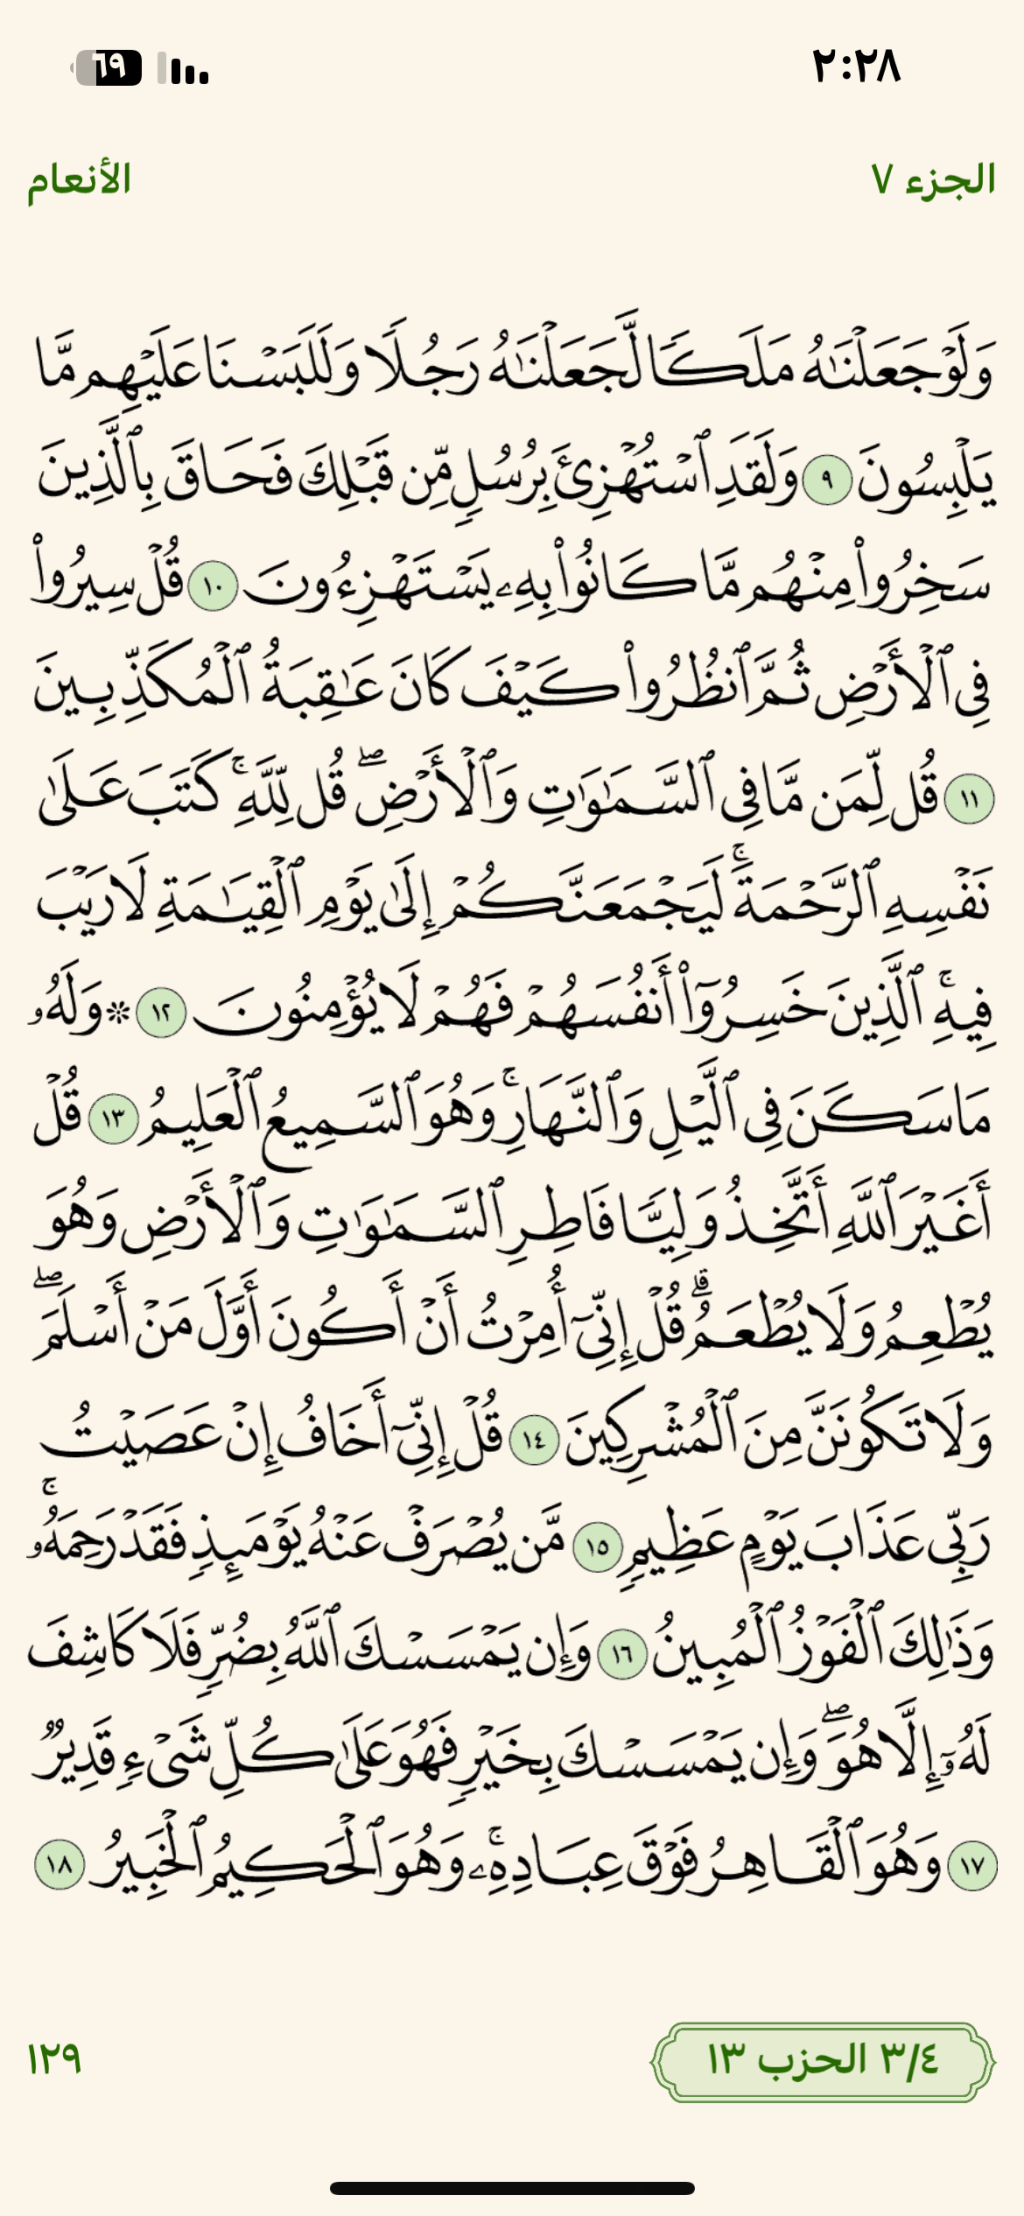 ٢:٢٨
٦٩
الجزء ٧
الأنعام
وَلَوۡ جَعَلۡنَٰهُ مَلَكٗا لَّجَعَلۡنَٰهُ رَجُلٗا وَلَلَبَسۡنَا عَلَيۡهِم مَّا
يَلۡبِسُونَ ٩ وَلَقَدِ ٱسۡتُهۡزِئَ بِرُسُلٖ مِّن قَبۡلِكَ فَحَاقَ بِٱلَّذِينَ
سَخِرُواْ مِنۡهُم مَّا كَانُواْ بِهِۦ يَسۡتَهۡزِءُونَ ١٠ قُلۡ سِيرُواْ
فِي ٱلۡأَرۡضِ ثُمَّ ٱنظُرُواْ كَيۡفَ كَانَ عَٰقِبَةُ ٱلۡمُكَذِّبِينَ
١١ قُل لِّمَن مَّا فِي ٱلسَّمَٰوَٰتِ وَٱلۡأَرۡضِۖ قُل لِّلَّهِۚ كَتَبَ عَلَىٰ
نَفۡسِهِ ٱلرَّحۡمَةَۚ لَيَجۡمَعَنَّكُمۡ إِلَىٰ يَوۡمِ ٱلۡقِيَٰمَةِ لَا رَيۡبَ
فِيهِۚ ٱلَّذِينَ خَسِرُوٓاْ أَنفُسَهُمۡ فَهُمۡ لَا يُؤۡمِنُونَ ١٢ ۞ وَلَهُۥ
مَا سَكَنَ فِي ٱلَّيۡلِ وَٱلنَّهَارِۚ وَهُوَ ٱلسَّمِيعُ ٱلۡعَلِيمُ ١٣ قُلۡ
أَغَيۡرَ ٱللَّهِ أَتَّخِذُ وَلِيّٗا فَاطِرِ ٱلسَّمَٰوَٰتِ وَٱلۡأَرۡضِ وَهُوَ
يُطۡعِمُ وَلَا يُطۡعَمُۗ قُلۡ إِنِّيٓ أُمِرۡتُ أَنۡ أَكُونَ أَوَّلَ مَنۡ أَسۡلَمَۖ
وَلَا تَكُونَنَّ مِنَ ٱلۡمُشۡرِكِينَ ١٤ قُلۡ إِنِّيٓ أَخَافُ إِنۡ عَصَيۡتُ
رَبِّي عَذَابَ يَوۡمٍ عَظِيمٖ ١٥ مَّن يُصۡرَفۡ عَنۡهُ يَوۡمَئِذٖ فَقَدۡ رَحِمَهُۥۚ
وَذَٰلِكَ ٱلۡفَوۡزُ ٱلۡمُبِينُ ١٦ وَإِن يَمۡسَسۡكَ ٱللَّهُ بِضُرّٖ فَلَا كَاشِفَ
لَهُۥٓ إِلَّا هُوَۖ وَإِن يَمۡسَسۡكَ بِخَيۡرٖ فَهُوَ عَلَىٰ كُلِّ شَيۡءٖ قَدِيرٞ
١٧ وَهُوَ ٱلۡقَاهِرُ فَوۡقَ عِبَادِهِۦۚ وَهُوَ ٱلۡحَكِيمُ ٱلۡخَبِيرُ ١٨
٣/٤ الحزب ١٣
١٢٩